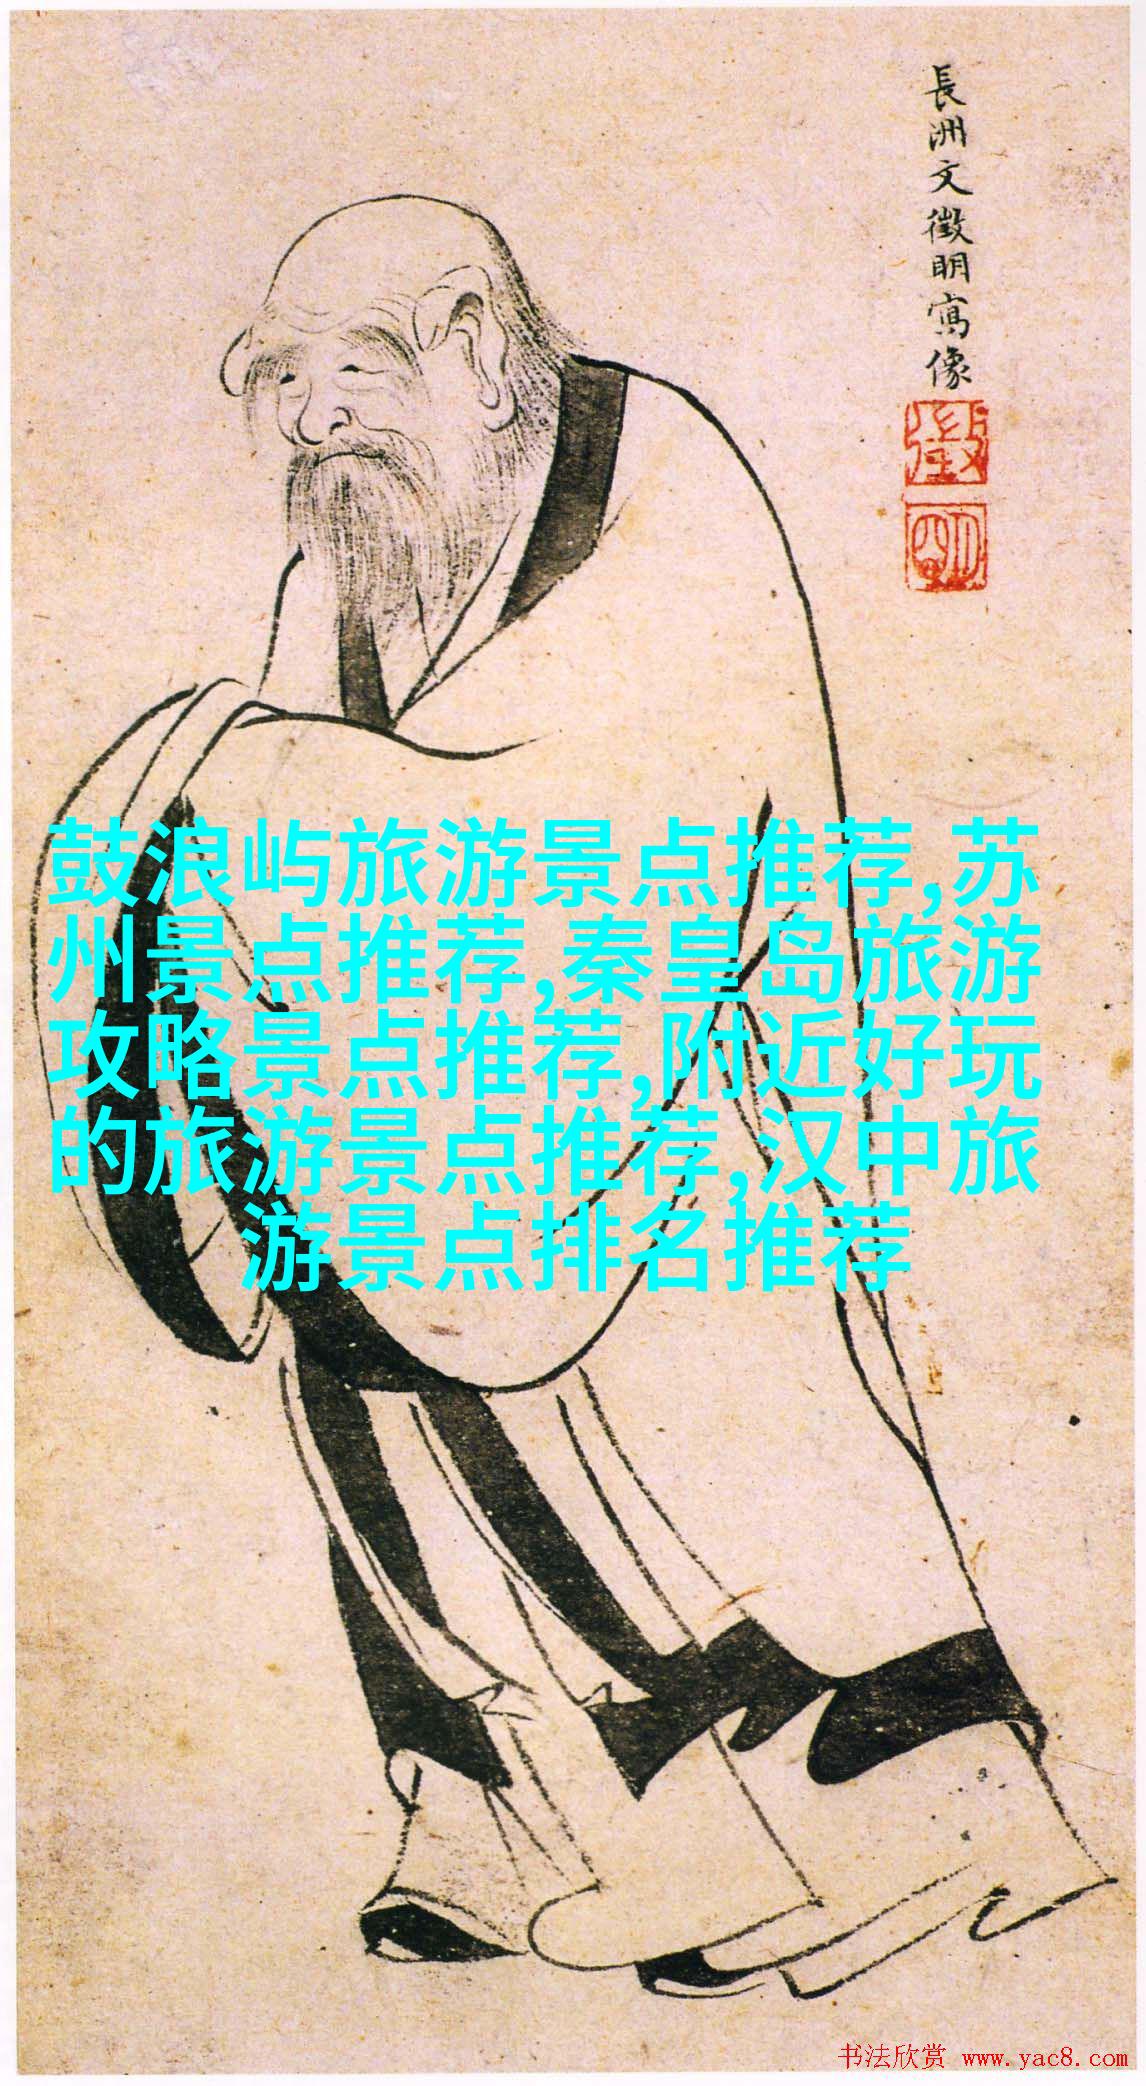 長洲文徵明寫像
徵
明
鼓浪屿旅游景点推荐,苏
州景点推荐,秦皇岛旅游
攻略景点推荐,附近好玩
的旅游景点推荐,汉中旅
游景点排名推荐
书法欣赏 www.yac8.com